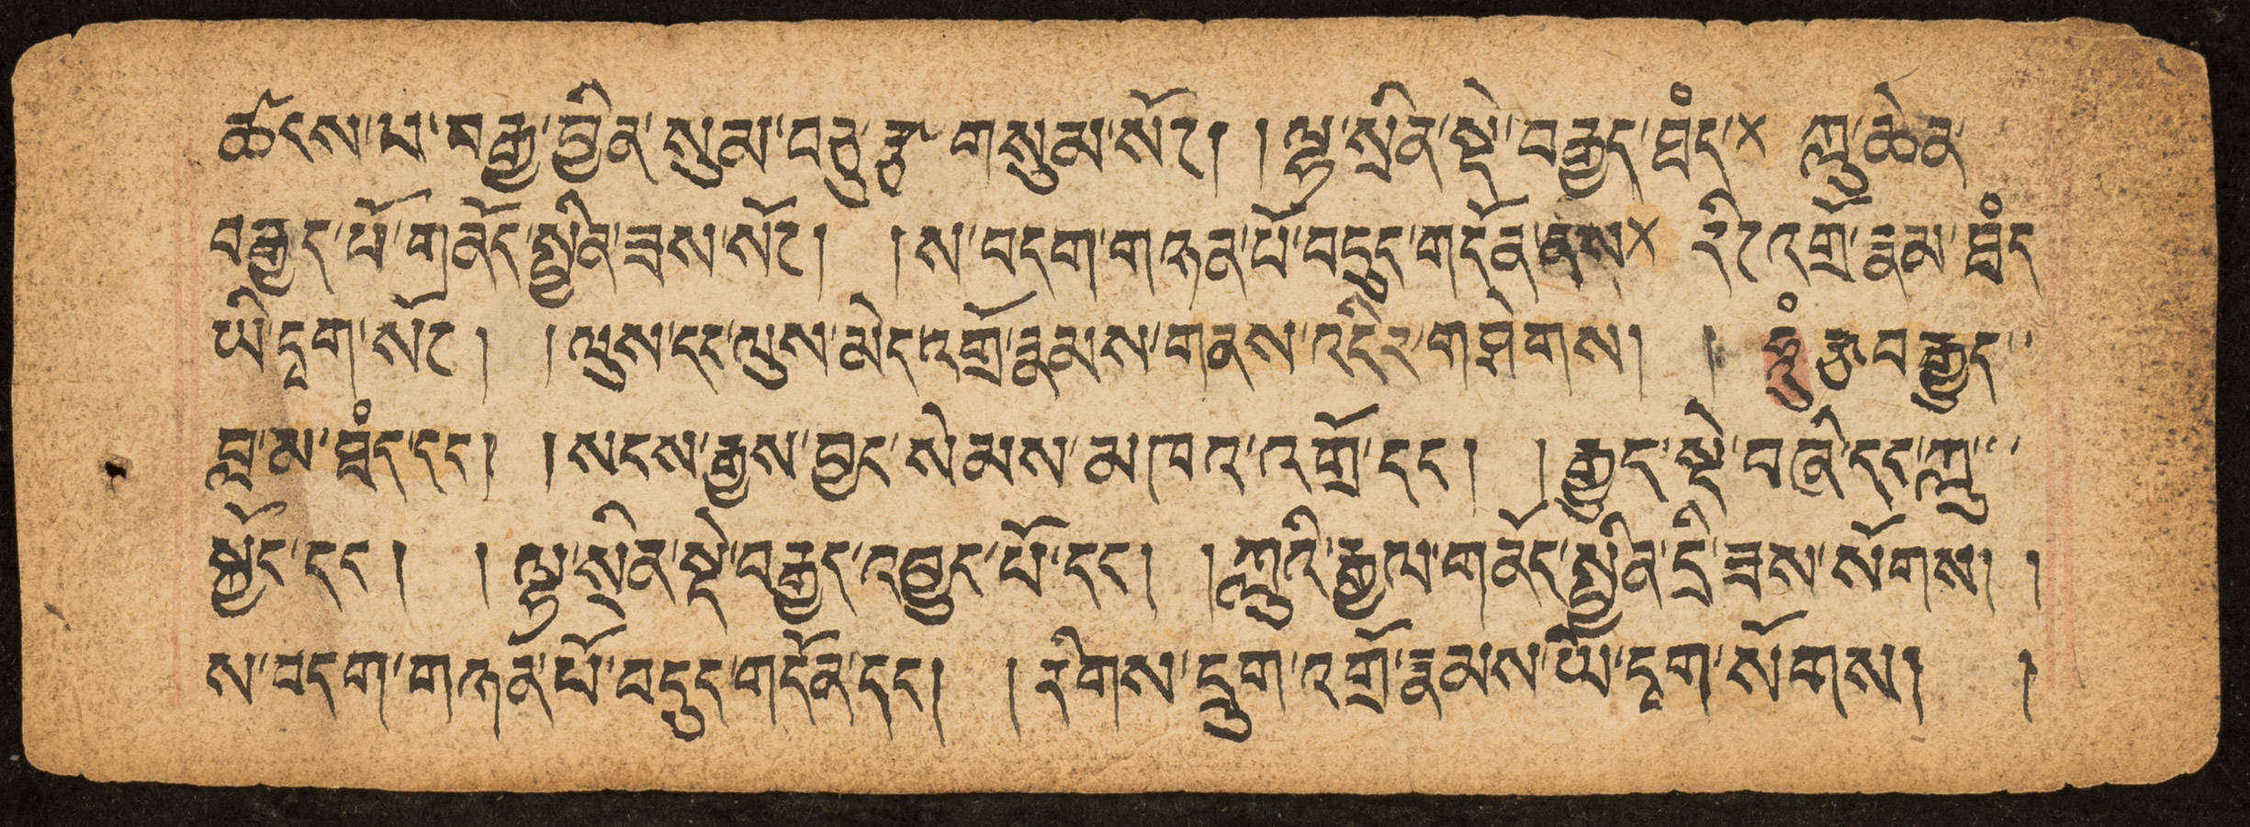 ཚངས་པ་བརྒྱ་བྱིན་སུམ་བཅུ་རྩ་གསུམ་སོ༔ །ལྷ་སྲིན་སྡེ་བརྒྱད་བྲཾད་× ཀླུ་ཆེན་
བརྒྱད་པོ་གནོད་སྦྱིན་ཟས་སོ༔ །ས་བདག་གཉན་པོ་བདུད་གདོན་ནས་× རི༔འགྲོ་རྣམ་བྲཾད་
ཡི་དྭག་སོ༔ །ལུས་དང་ལུས་མེད་འགྲོ་རྣམས་གནས་འདིར་གཤེགས། །ཧཱུྃ་རྩ་བརྒྱུད་
བླ་མ་བྲཾད་དང་། །སངས་རྒྱས་བྱང་སེམས་མཁའ་འགྲོ་དང་། །རྒྱུད་སྡེ་བཞི་དང་ཀླུ་
སྐྱོང་དང་། །ལྷ་སྲིན་སྡེ་བརྒྱད་འབྱུང་པོ་དང་། །ཀླུའི་རྒྱལ་གནོད་སྦྱིན་དྲི་ཟས་སོགས། །
ས་བདག་གཉན་པོ་བདུད་གདོན་དང་། །རིགས་དྲུག་འགྲོ་རྣམས་ཡི་དྭག་སོགས། །